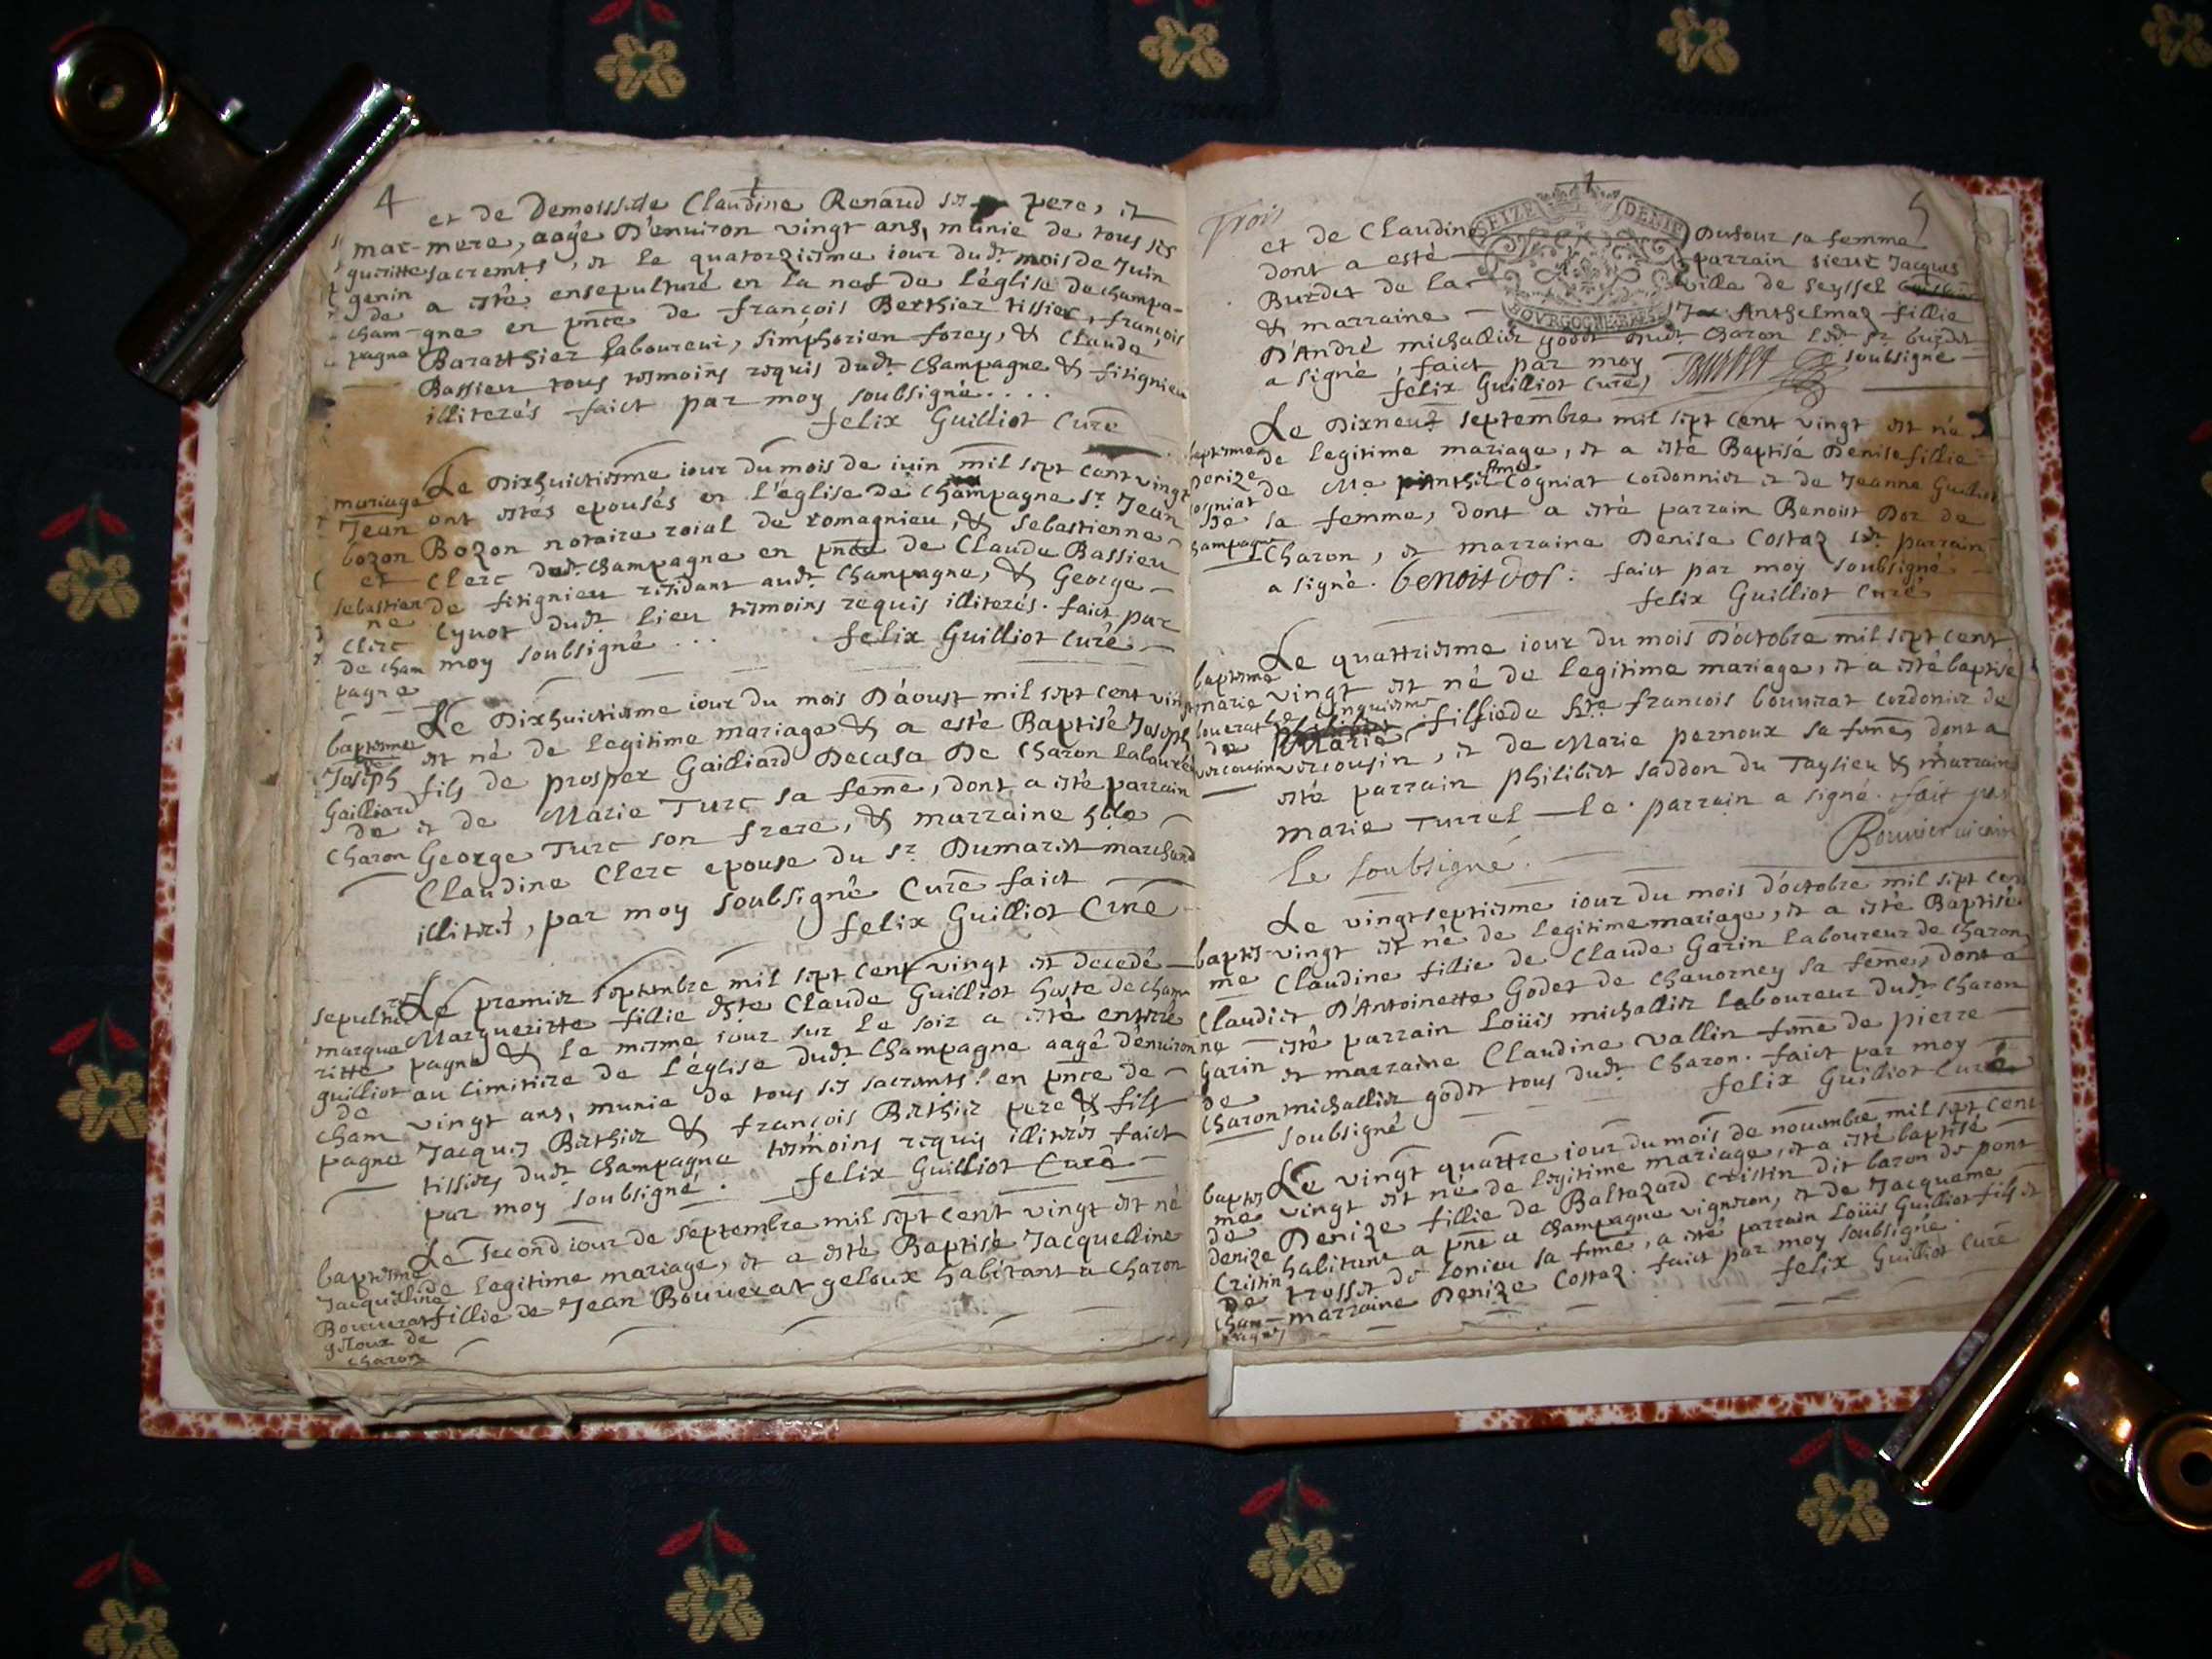 4
et de Demoisselle Claudine Renaud ses pere, et
mar- mere, aagé D'enuiron vingt ans, munie de tous ses
gueritte sacremts, et le quatorziesme iour dudt mois de Juin
genin a esté ensepulturé en la nef de l'église de champa-
de
cham- gne en pnce de françois Berthier tissier, françois
pagne Baratthier laboureur, simphorien forey, & Claude
Bassieu tous tesmoins requis dudt champagne & fitignieu
illiterés faict par moy soubsigné....
felix Guilliot Curé
Le Dixhuictiesme iour du mois de iuin mil sept cent vingt
mariage ont estés epousés en l'église de champagne sr. Jean
Jean
bozon Bozon notaire roial de romagnieu, & sebastienne
et Clerc dudt champagne en pnce de Claude Bassieu
sebastien de fitignieu residant audt champagne, & George
ne
Clerc Cynot dudt lieu tesmoins requis illiterés. faict par
de cham moy soubsigné felix Guilliot Curé
pagne
Le Dixhuictiesme iour du mois D'aoust mil sept cent vingt
baptesme est né de legitime mariage & a esté Baptisé Joseph
de
Joseph fils de prosper Gailliard Decasa De Charon laboureur
Gailliard
de et de Marie Turc sa feme, dont a esté parrain
Charon George Turc son frere, & marraine hble
Claudine Clerc epouse du sr. Dumarest marchand
illiteré, par moy soubsigné Curé faict
felix Guilliot Curé
Le premier septembre mil sept cent vingt est decedé
sepulture Margueritte fillie Claude Guilliot hoste de cham
margue pagne & le mesme iour sur le soir a esté enterré
ritte
guilliot au cimitiere de l'église dudt champagne aagé d'enuiron
de vingt ans, munie de tous ses sacremts en pnce de
cham
pagne Jacques Berthier & françois Berthier pere & fils
tissiers dudt champagne tesmoins requis illiterés faict
par moy soubsigné. felix Guilliot Curé
Le second iour de septembre mil sept cent vingt est né
baptesme de legitime mariage, et a esté Baptisé Jacquelline
Jacquelline
Bouuerat fillie de Jean Bouuerat geloux habitant a charon
geloux de
charon
Trois
5
SEIZE DENIERS
BOVRGOGNE BRESSE
et de Claudine Dufour sa femme
dont a esté parrain sieur Jacques
Burdet de la ville de seyssel
& marraine Anthelmaz fillie
D'André michallier godet dudt Charon ledt sr burdet
a signé, faict par moy soubsigné
felix Guilliot Curé, Burdet
Le Dixneuf septembre mil sept cent vingt est né
baptesme de legitime mariage, et a esté Baptisé Denise fillie
Denize de Cogniat cordonnier et de Jeanne Guilliot
cogniat
de sa femme, dont a esté parrain Benoist Dor de
champagne Charon, et marraine Denise Costaz ledt parrain
a signé. benoist dor. faict par moy soubsigné
felix Guilliot Curé
Le quattriesme iour du mois D'octobre mil sept cent
baptesme vingt est né de legitime mariage, et a esté baptisé
marie le cinquiesme
bouerat Marie fillie de françois bouurat cordonier de
de
vercousin vercousin, et de Marie pernoux sa feme, dont a
esté parrain philibert saddon du Taysieu & marraine
marie Turrel le parrain a signé. fait par
le soubsigné. Bouuier vicaire
Le vingtseptiesme iour du mois d'octobre mil sept cent
baptes- vingt est né de legitime mariage, et a esté Baptisé
me Claudine fillie de Claude Garin laboureur de charon
Claudi et D'Antoinette Godet de chauorney sa feme, dont a
ne esté parrain Loüis michallier laboureur dudt charon
Garin et marraine Claudine Vallin feme de pierre
de
Charon michallier godet tous dudt Charon. faict par moy
soubsigné felix Guilliot Curé
Le vingt quattre iour du mois de nouembre mil sept cent
baptes
me vingt est né de legitime mariage, et a esté baptisé
de Denize fillie de Baltazard Cristin dit baron de pont
denize
Cristin habitant a pnt a champagne vigneron, et de Jacqueme
de trosset de lonieu sa feme, a esté parrain Loüis Guilliot fils et
cham- marraine Denize Costaz. faict par moy soubsigné.
pagne felix Guilliot Curé